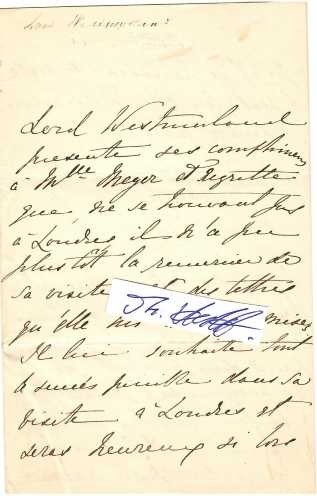 Lord Westmorland
présente ses complimens
à Mlle Meyer et regrette
que, ne se trouvant pas
à Londres il n'a pu
plustôt la remercier de
sa visite et des lettres
qu'elle lui mises
Il lui souhaite tout
succès possible dans sa
visite à Londres et
sera heureux si lors